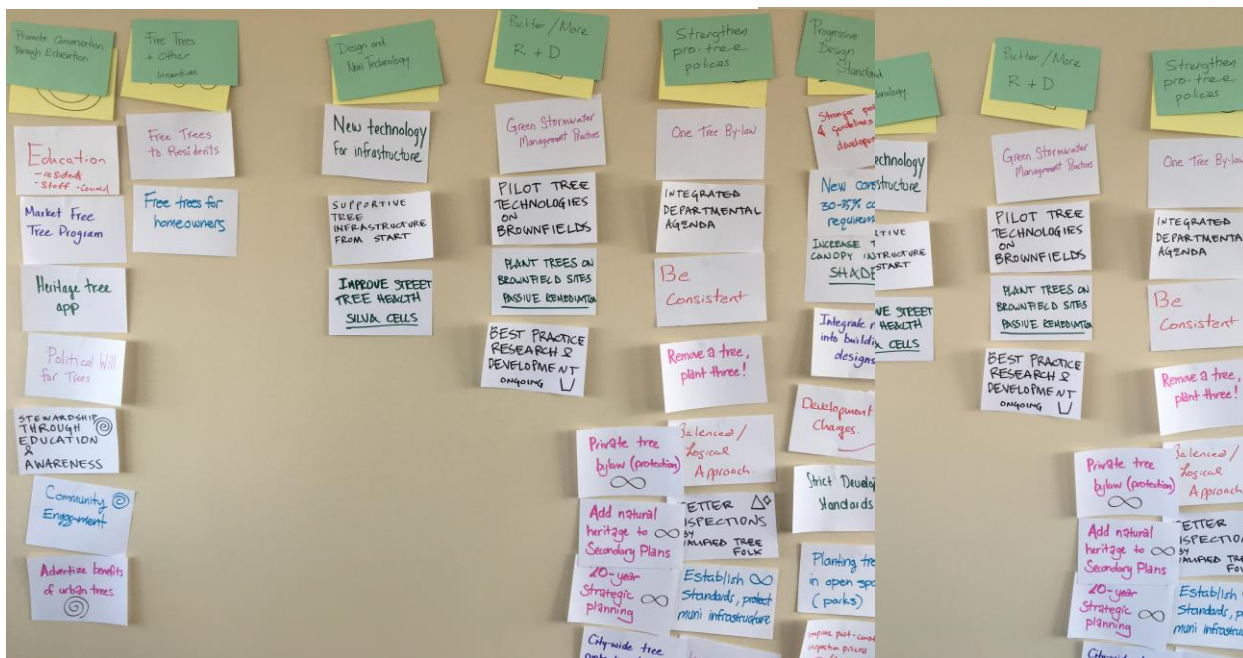 Promote Conservation
Through Education
Education
- residents
- Staff - Council
Market Free
Tree Program
Heritage tree
app
Political Will
for Trees
STEWARDSHIP
THROUGH
EDUCATION
&
AWARENESS
Community
Engagement
Advertize benefits
of urban trees
Free Trees
+ Other
Incentives
Free Trees
to Residents
Free trees for
homeowners
Design and
New Technology
New technology
for infrastructure
SUPPORTIVE
TREE
INFRASTRUCTURE
FROM START
IMPROVE STREET
TREE HEALTH
SILVA CELLS
Better/More
R + D
Green Stormwater
Management Practices
PILOT TREE
TECHNOLOGIES
ON
BROWNFIELDS
PLANT TREES ON
BROWNFIELD SITES
PASSIVE REMEDIATION
BEST PRACTICE
RESEARCH &
DEVELOPMENT
ONGOING
Strengthen
pro-tree
policies
One Tree By-law
INTEGRATED
DEPARTMENTAL
AGENDA
Be
Consistent
Remove a tree,
plant three!
Private tree
bylaw (protection)
∞
Balenced/
Logical
Approach.
Add natural
heritage to ∞
Secondary Plans
ETTER
NSPECTIONS
BY
UALIFIED TREE
FOLK
20-year
Strategic ∞
planning
Establish ∞
Standards, protect
muni infrastructure
City-wide tree
Progressive
Design
Standard
Stronger
& guidelines
develop
New cons
30-35% c
requirem
INCREASE T
CANOPY IN
SHADE
Integrate n
into buildin
designs
Development
Charges.
Strict Develo
Standards
Planting tre
in open spa
(parks)
Improve post-const
inspection process
nology
echnology
structure
TIVE
STRUCTURE
START
VE STREET
HEALTH
A CELLS
Better/More
R + D
Green Stormwater
Management Practices
PILOT TREE
TECHNOLOGIES
ON
BROWNFIELDS
PLANT TREES ON
BROWNFIELD SITES
PASSIVE REMEDIATION
BEST PRACTICE
RESEARCH &
DEVELOPMENT
ONGOING
Strengthen
pro-tree
policies
One Tree By-law
INTEGRATED
DEPARTMENTAL
AGENDA
Be
Consistent
Remove a tree,
plant three!
Private tree
bylaw (protection)
∞
Balenced/
Logical
Approach
Add natural
heritage to ∞
Secondary Plans
ETTER
NSPECTION
BY
UALIFIED TREE
FOLK
20-year
Strategic ∞
planning
Establish
Standards, pro
muni infrastruc
City-wide